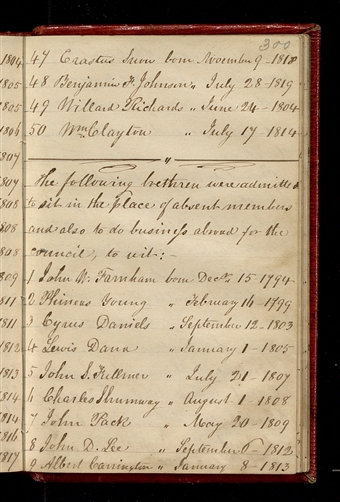 300
1804 47 Erastus Snow born November 9 - 1818
1805 48 Benjamin F. Johnson " July 28 - 1819
1805 49 Willard Richards " June 24 - 1804
1806 50 Wm. Clayton " July 17 - 1814
1807
1807 The following brethren were admitted
1808 to sit in the place of absent members
808 and also to do business abroad for the
808 council, to wit:-
809 1 John W. Farnham born Decr. 15 - 1794
1811 2 Phineas Young " February 16 - 1799
1811 3 Cyrus Daniels " September 12 - 1803
1812 4 Lewis Dana " January 1 - 1805
1813 5 John S. Fullmer " July 21 - 1807
1814 6 Charles Shumway " August 1 - 1808
1814 7 John Pack " May 20 - 1809
1816 8 John D. Lee " September 6 - 1812
1817 9 Albert Carrington " January 8 - 1813